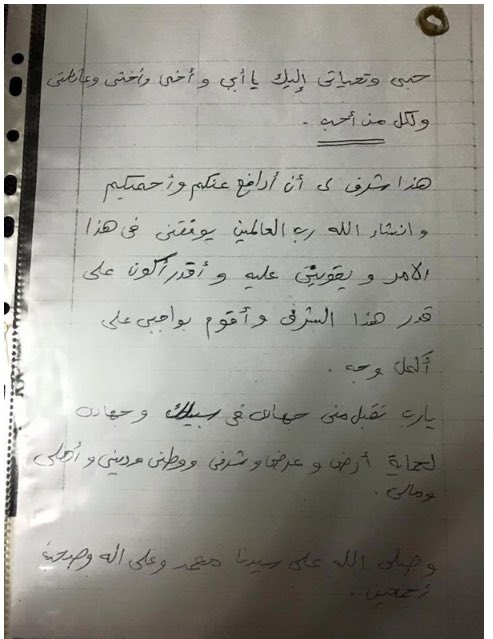 حبى وتحياتى إليك يا أبي و أخى وأختى وعائلتى
ولكل من أحب .
هذا شرف لى أن أدافع عنكم وأحميكم
و انشاء الله رب العالمين يوفقنى فى هذا
الامر و يقوينى عليه و أقدر أكون على
قدر هذا الشرف و أقوم بواجبى على
أكمل وجه .
يارب تقبل منى جهادى فى سبيلك وجهادى
لحماية أرضى و عرضى وشرفى ووطنى ودينى و أهلى
ومالى .
و صلى الله على سيدنا محمد وعلى اله وصحبه
أجمعين .